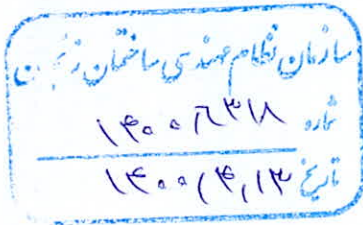 سازمان نظام مهندسی ساختمان زنجان
شماره ۱۴۰۰/۶۳۱۸
تاریخ ۱۴۰۰/۴/۱۳